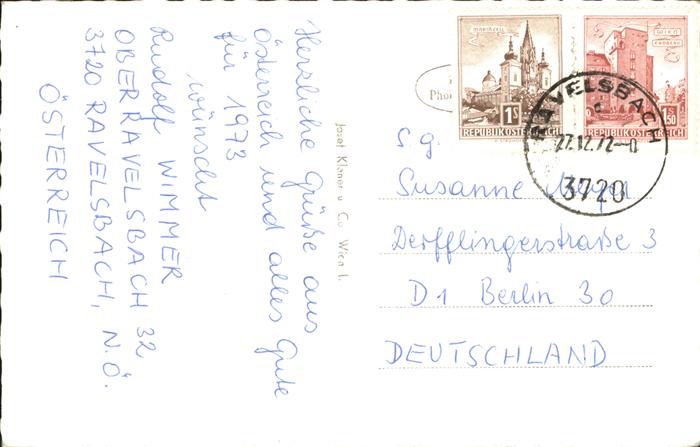 Herzliche Grüße aus
Österreich und alles Gute
für 1973
wünscht
Rudolf WIMMER
OBERRAVELSBACH 32
3720 RAVELSBACH, N.Ö.
ÖSTERREICH
Josef Klaner u. Co Wien I.
Phot
MARIAZELL
1S
REPUBLIK ÖSTERREICH
WIEN
ERDBERG
1.50
REPUBLIK ÖSTERREICH
RAVELSBACH
c
27.12.72-0
3720
S.g.
Susanne Meyer
Derfflingerstraße 3
D1 Berlin 30
DEUTSCHLAND